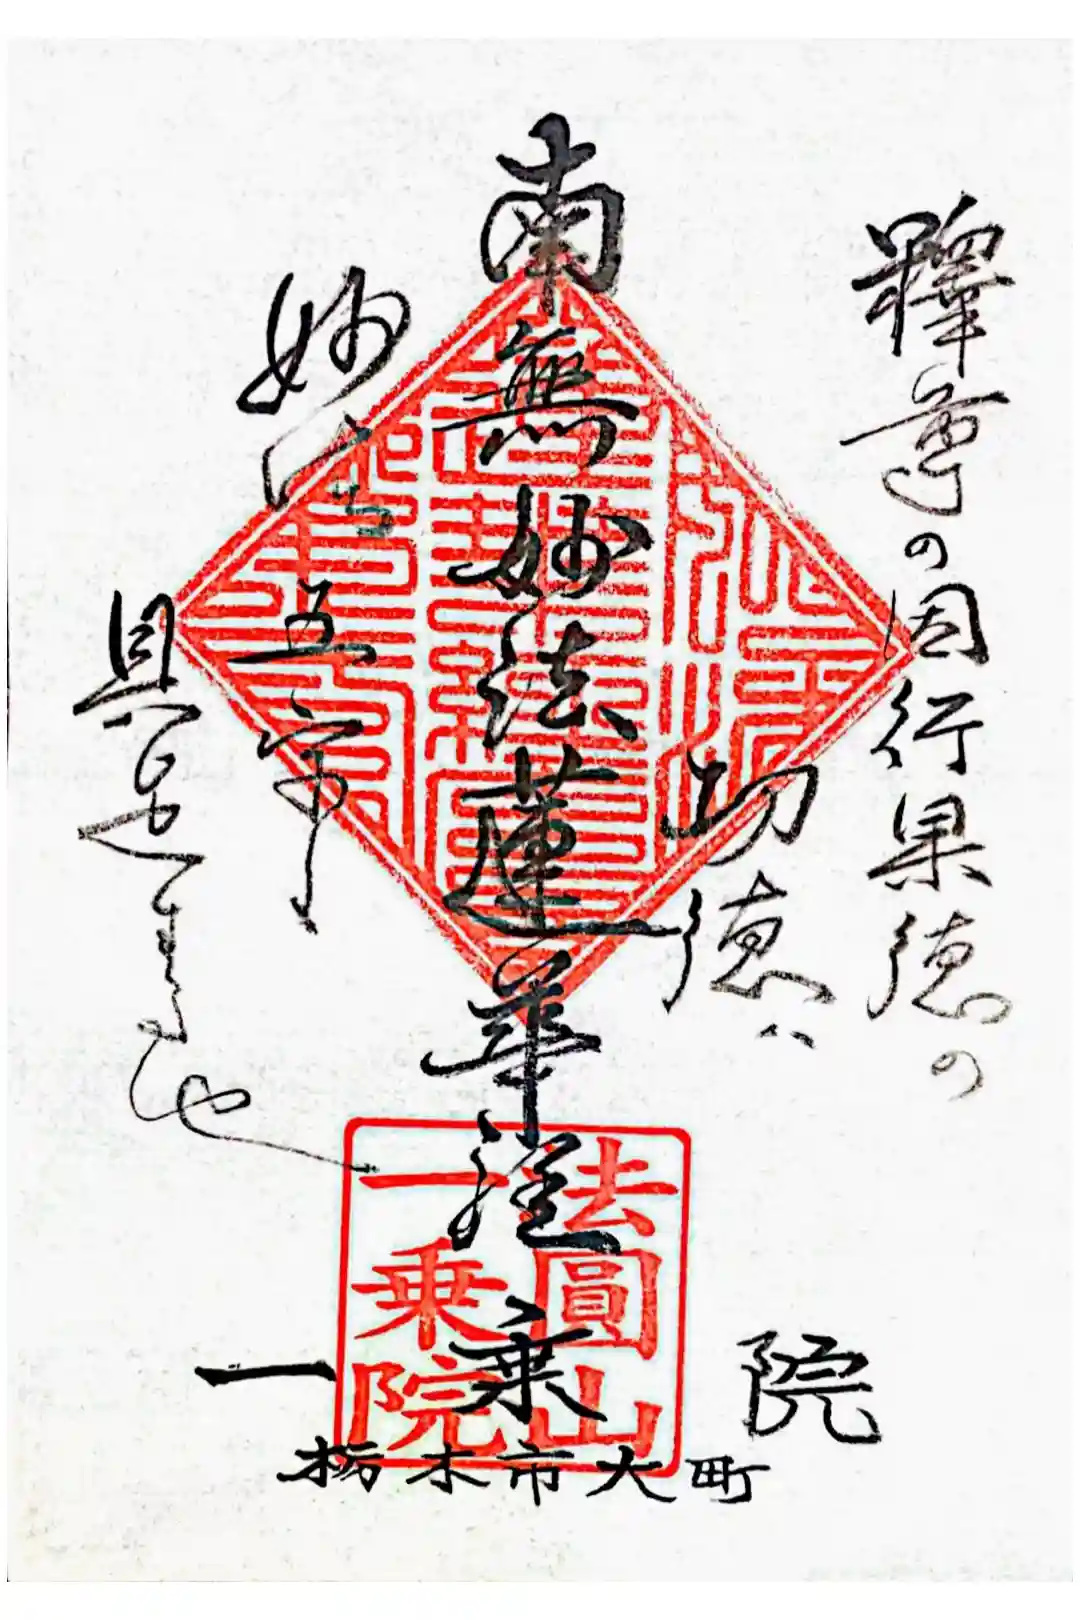 釋尊の因行果徳の
功徳ハ
南無妙法蓮華経
妙法五字
具足す
一乗院
栃木市大町
法圓山
一乗院